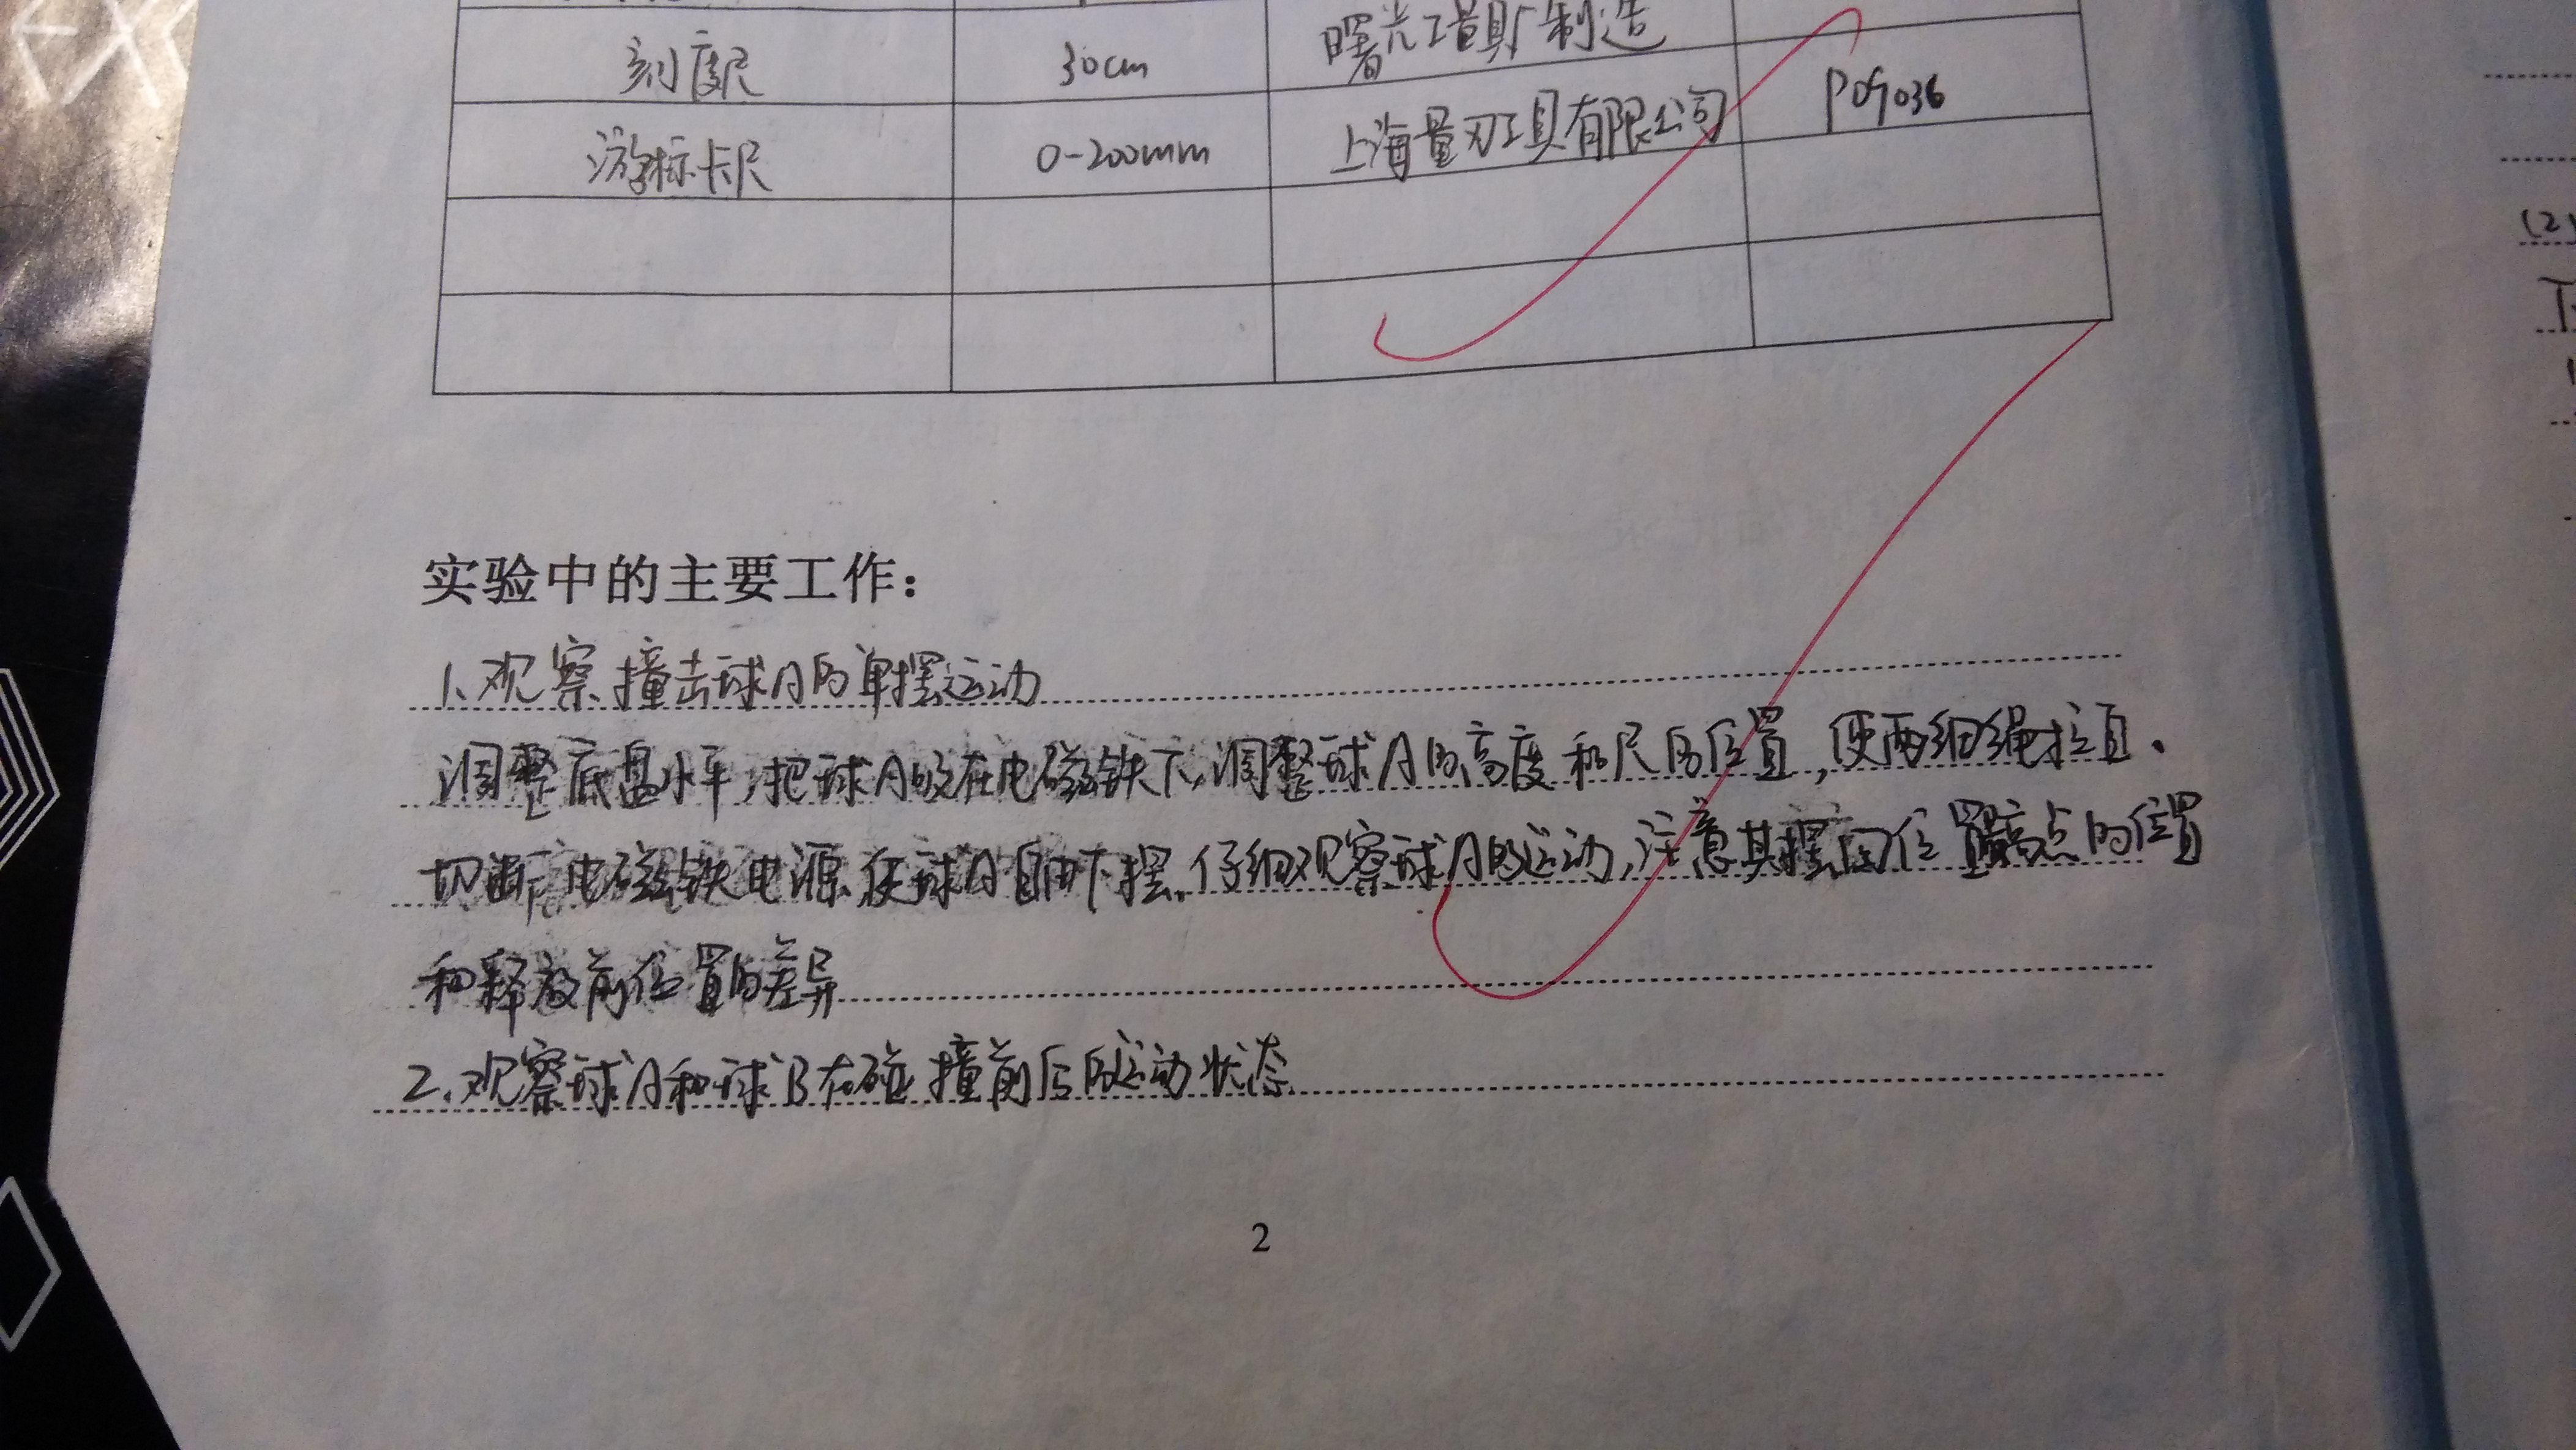 刻度尺 30cm 曙光工量具厂制造
游标卡尺 0-200mm 上海量刃工具有限公司 P09036
实验中的主要工作：
1.观察撞击球A的单摆运动
调整底盘水平,把球A吸在电磁铁下,调整球A的高度和尺的位置,使两细绳拉直.
切断电磁铁电源,使球A自由下摆.仔细观察球A的运动,注意其摆回位置最高点的位置
和释放前位置的差异
2.观察球A和球B在碰撞前后的运动状态
2
(2)